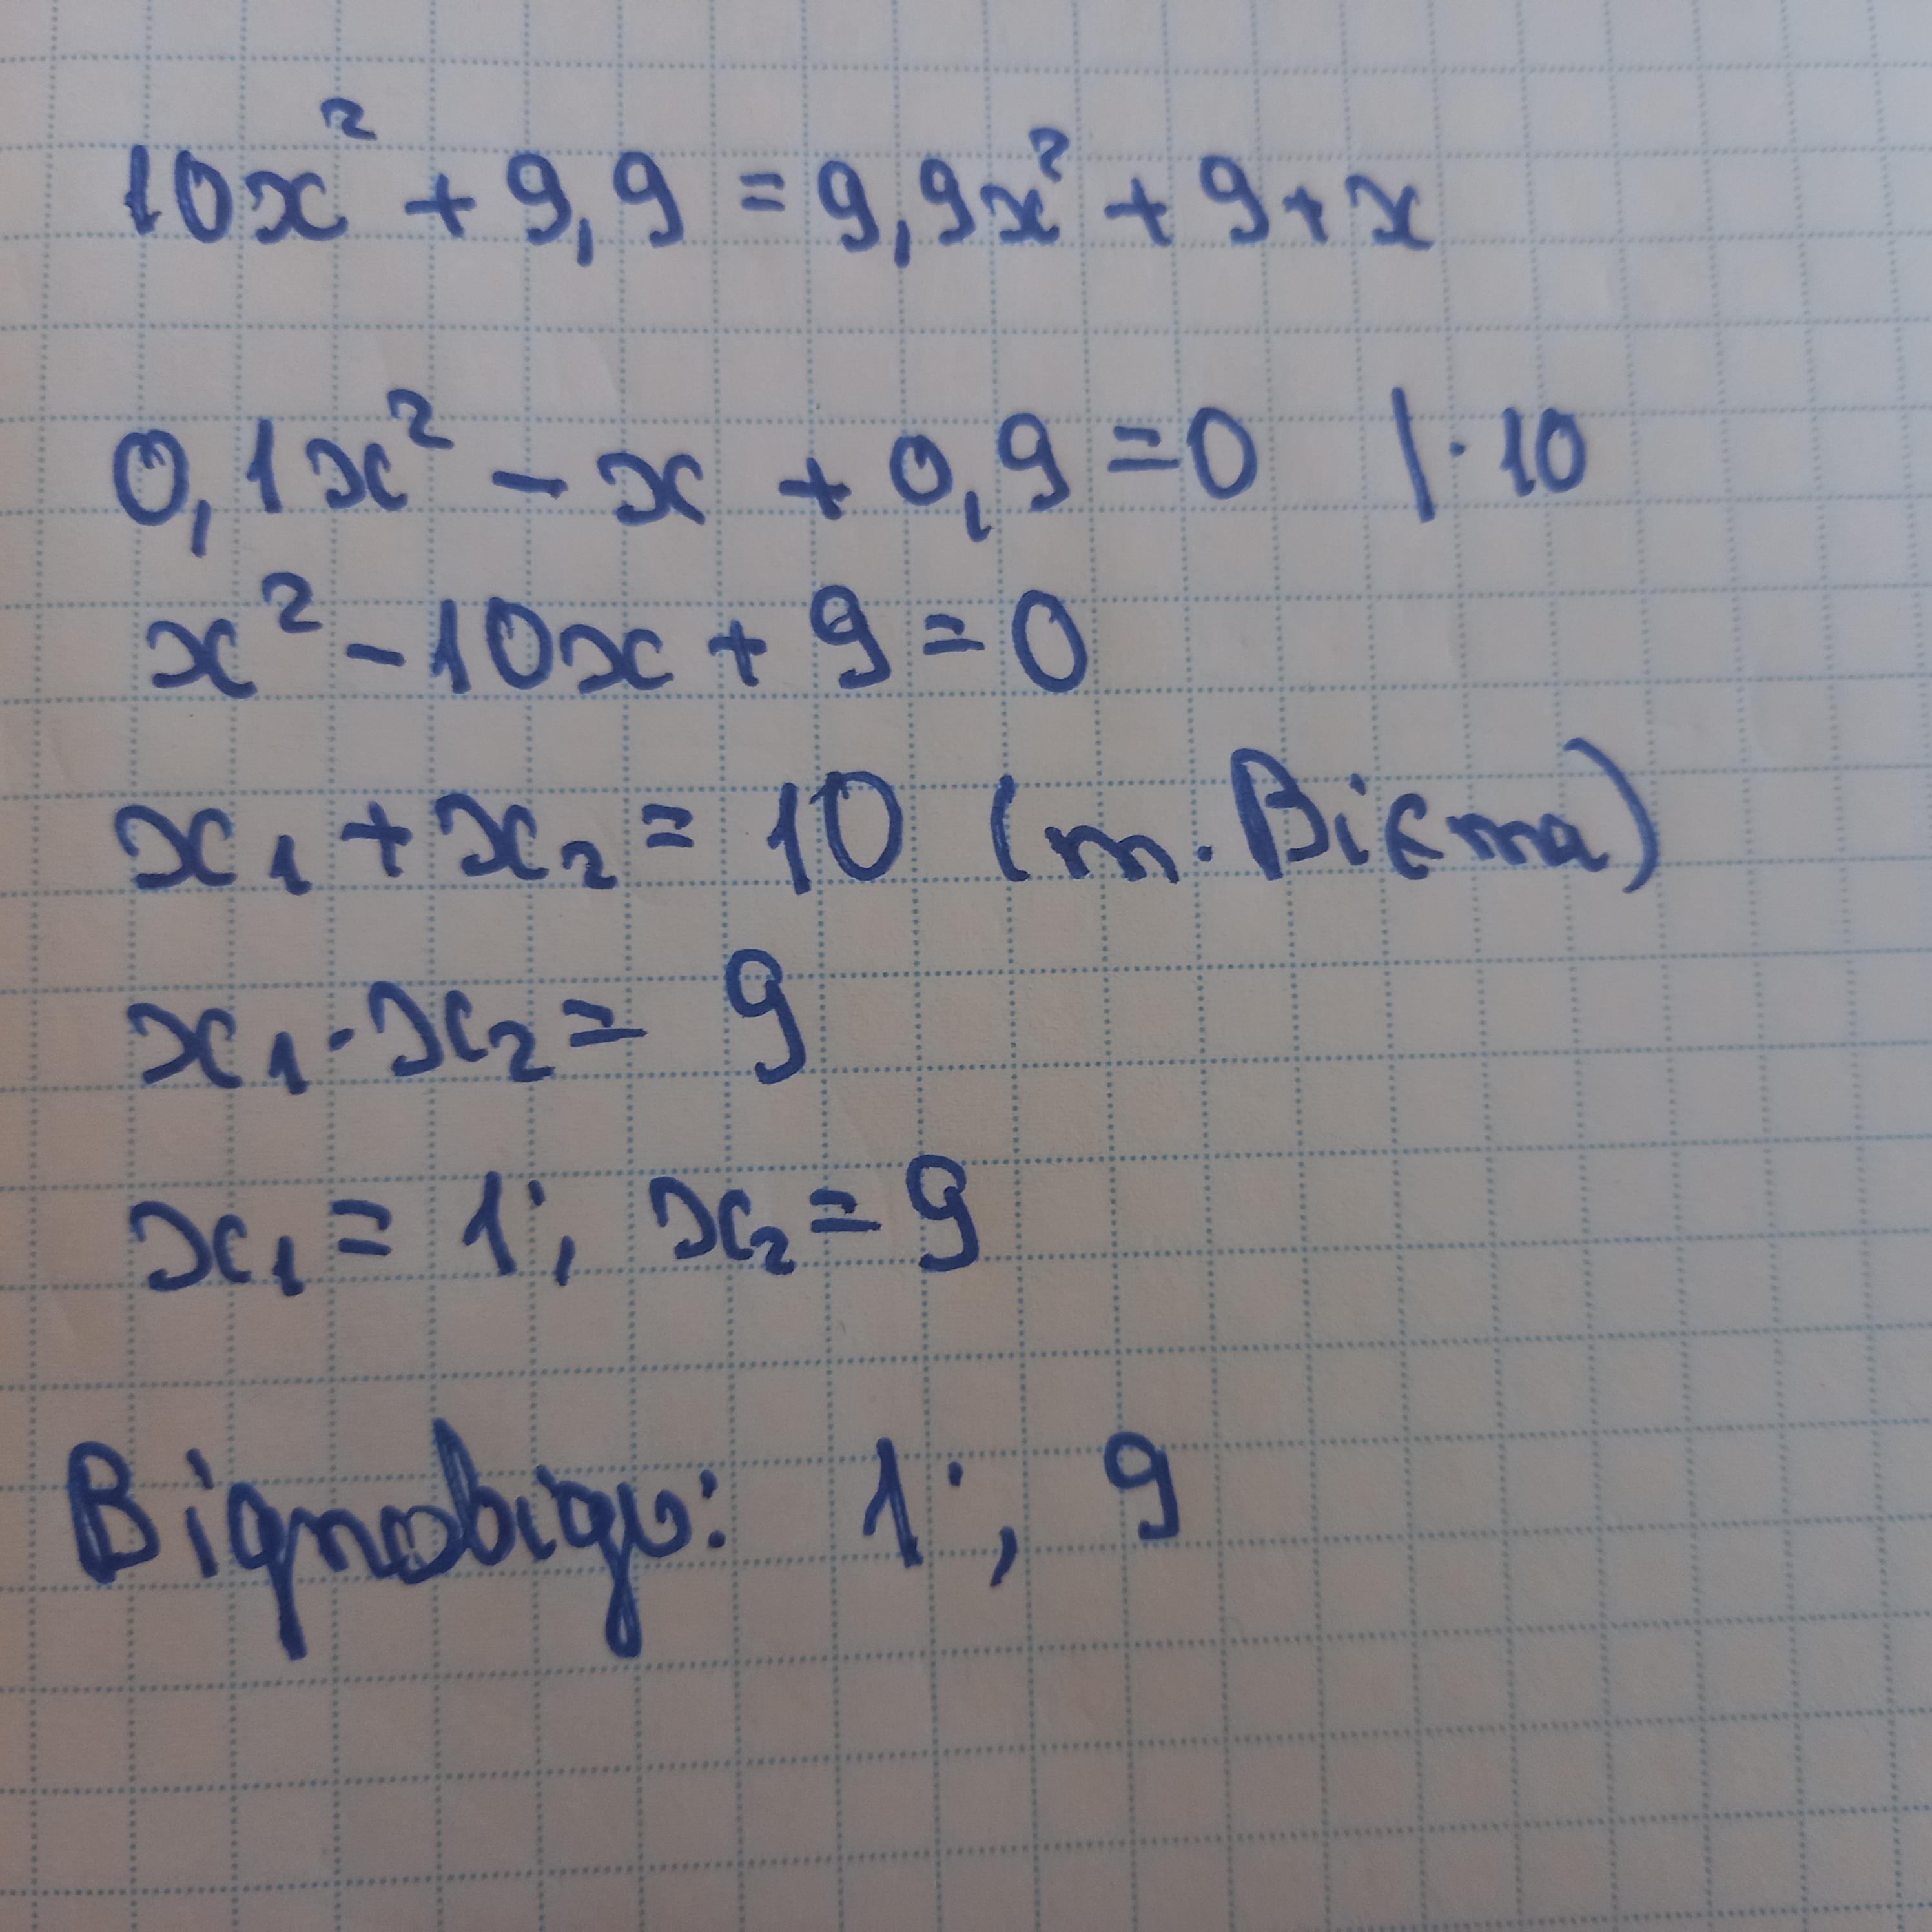 10x² + 9,9 = 9,9x² + 9 + x
0,1x² - x + 0,9 = 0 | · 10
x² - 10x + 9 = 0
x₁ + x₂ = 10 (т. Вієта)
x₁ · x₂ = 9
x₁ = 1; x₂ = 9
Відповідь: 1; 9